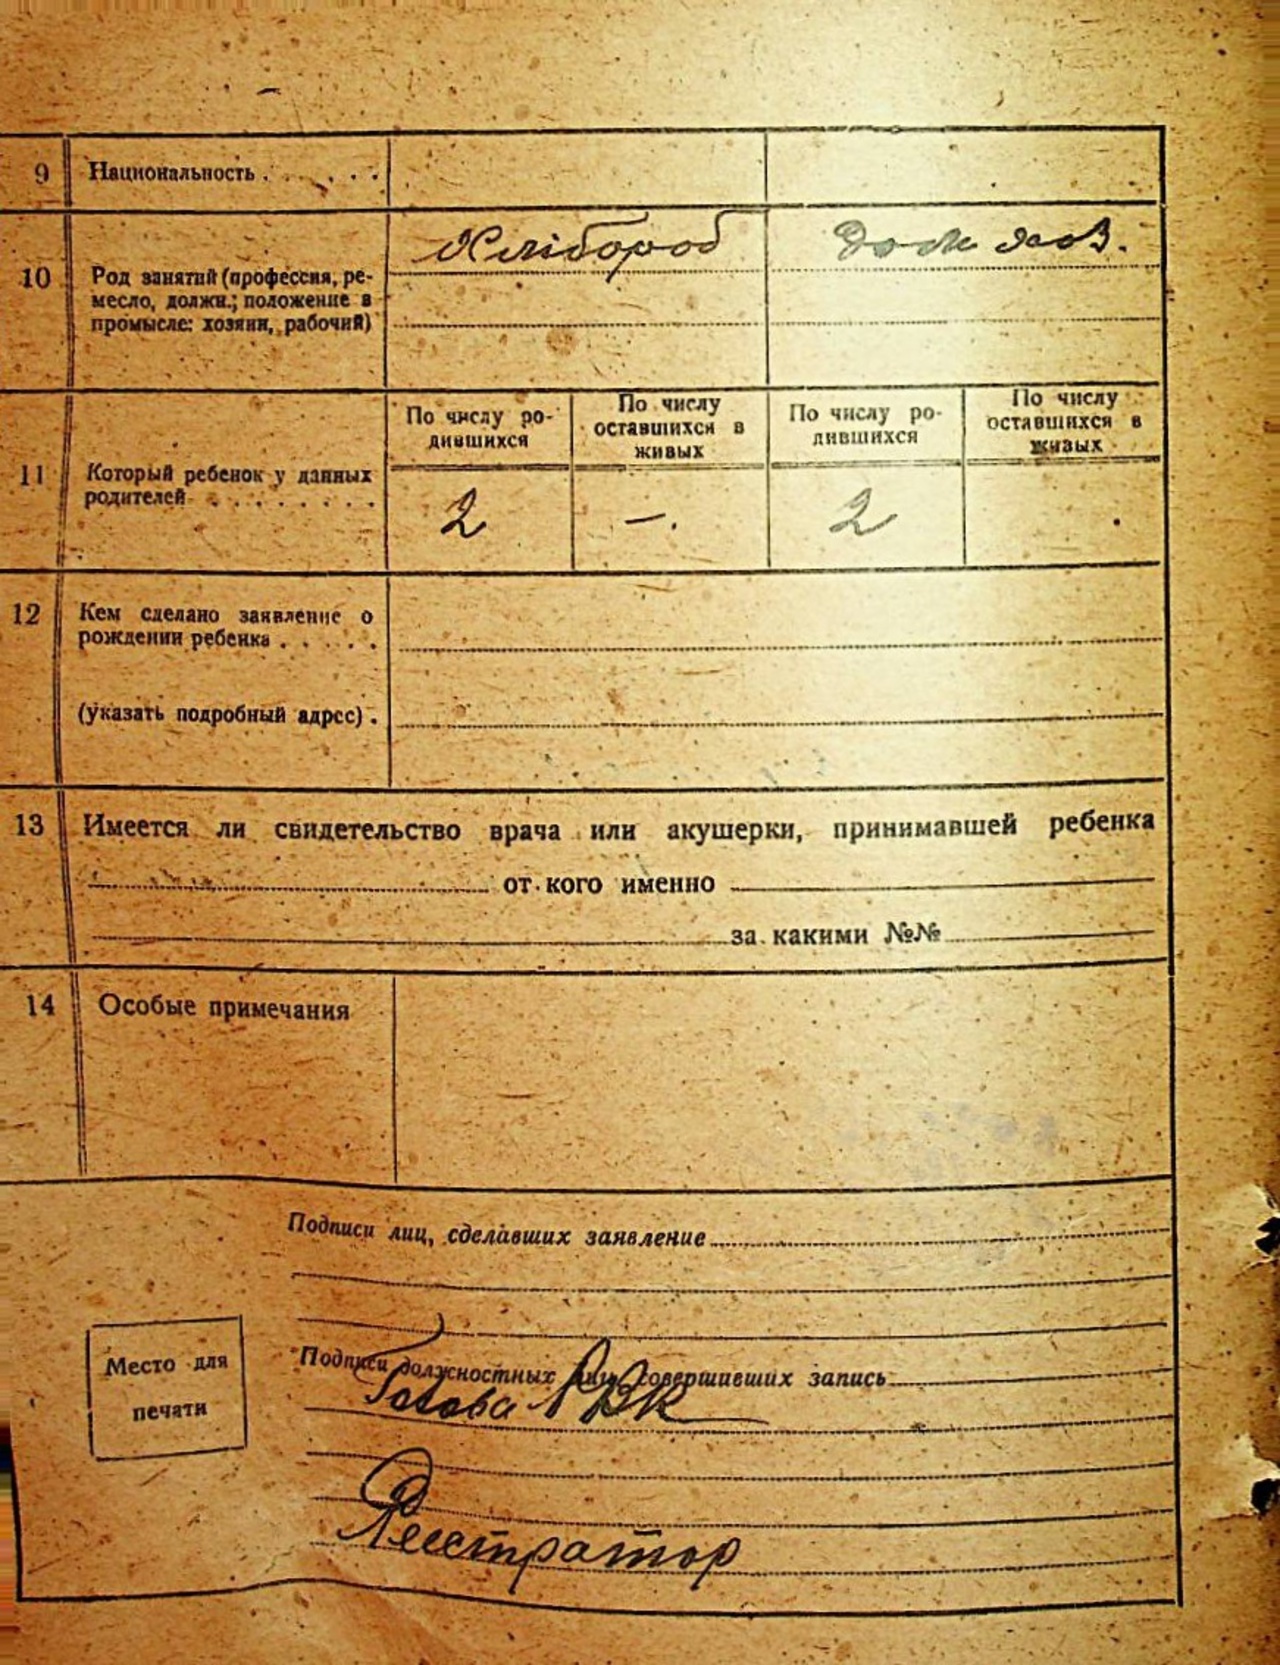 9 Национальность . . . . . .
Хлібороб Дом хоз.
10 Род занятий (профессия, ре-
месло, должн.; положение в
промысле: хозяин, рабочий)
11 Который ребенок у данных
родителей . . . . . . . .
По числу ро-
дившихся
По числу
оставшихся в
живых
По числу ро-
дившихся
По числу
оставшихся в
живых
2 —. 2
12 Кем сделано заявление о
рождении ребенка . . . . .
(указать подробный адрес) .
13 Имеется ли свидетельство врача или акушерки, принимавшей ребенка
от кого именно
за какими №№
14 Особые примечания
Подписи лиц, сделавших заявление
Место для
печати
Подписи должностных лиц, совершивших запись
Голова РВК
Реєстратор